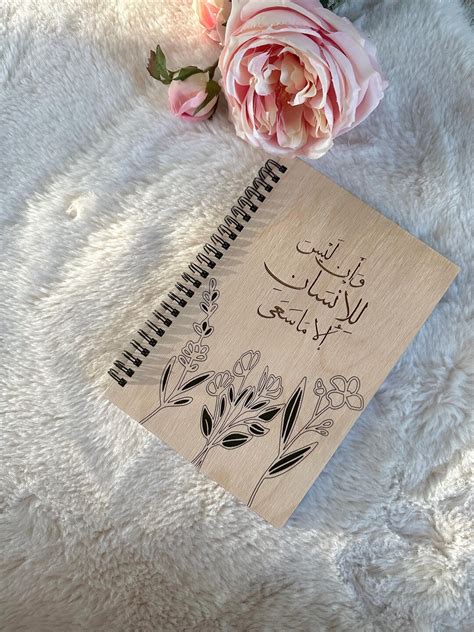 وَأَن لَّيْسَ
لِلإِنسَانِ
إِلَّا مَا سَعَىٰ